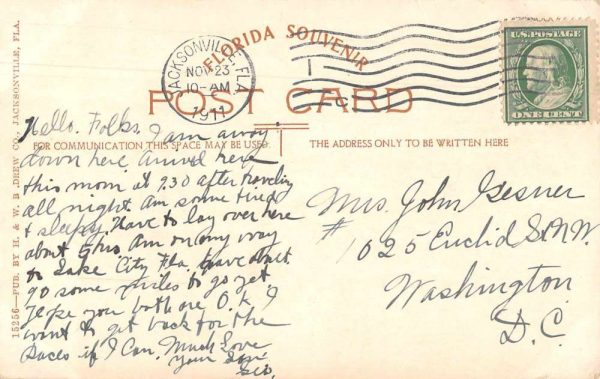 FLORIDA SOUVENIR
JACKSONVILLE, FLA.
NOV 23
10-AM
1911
U.S. POSTAGE
ONE CENT
POST CARD
FOR COMMUNICATION THIS SPACE MAY BE USED
THE ADDRESS ONLY TO BE WRITTEN HERE
15256—PUB. BY H. & W. B. DREW CO., JACKSONVILLE, FLA.
Hello. Folks. I am away
down here arrived here
this morn at 9.30 after traveling
all night. Am some tired
& sleepy. Have to lay over here
about 6 hrs Am on my way
to Lake City Fla. have about
90 some miles to go yet
hope you both are O.K. I
want to get back for the
Races if I Can. Much Love
your Son
Geo.
Mrs. John Gesner
# 1025 Euclid St. N.W.
Washington
D.C.